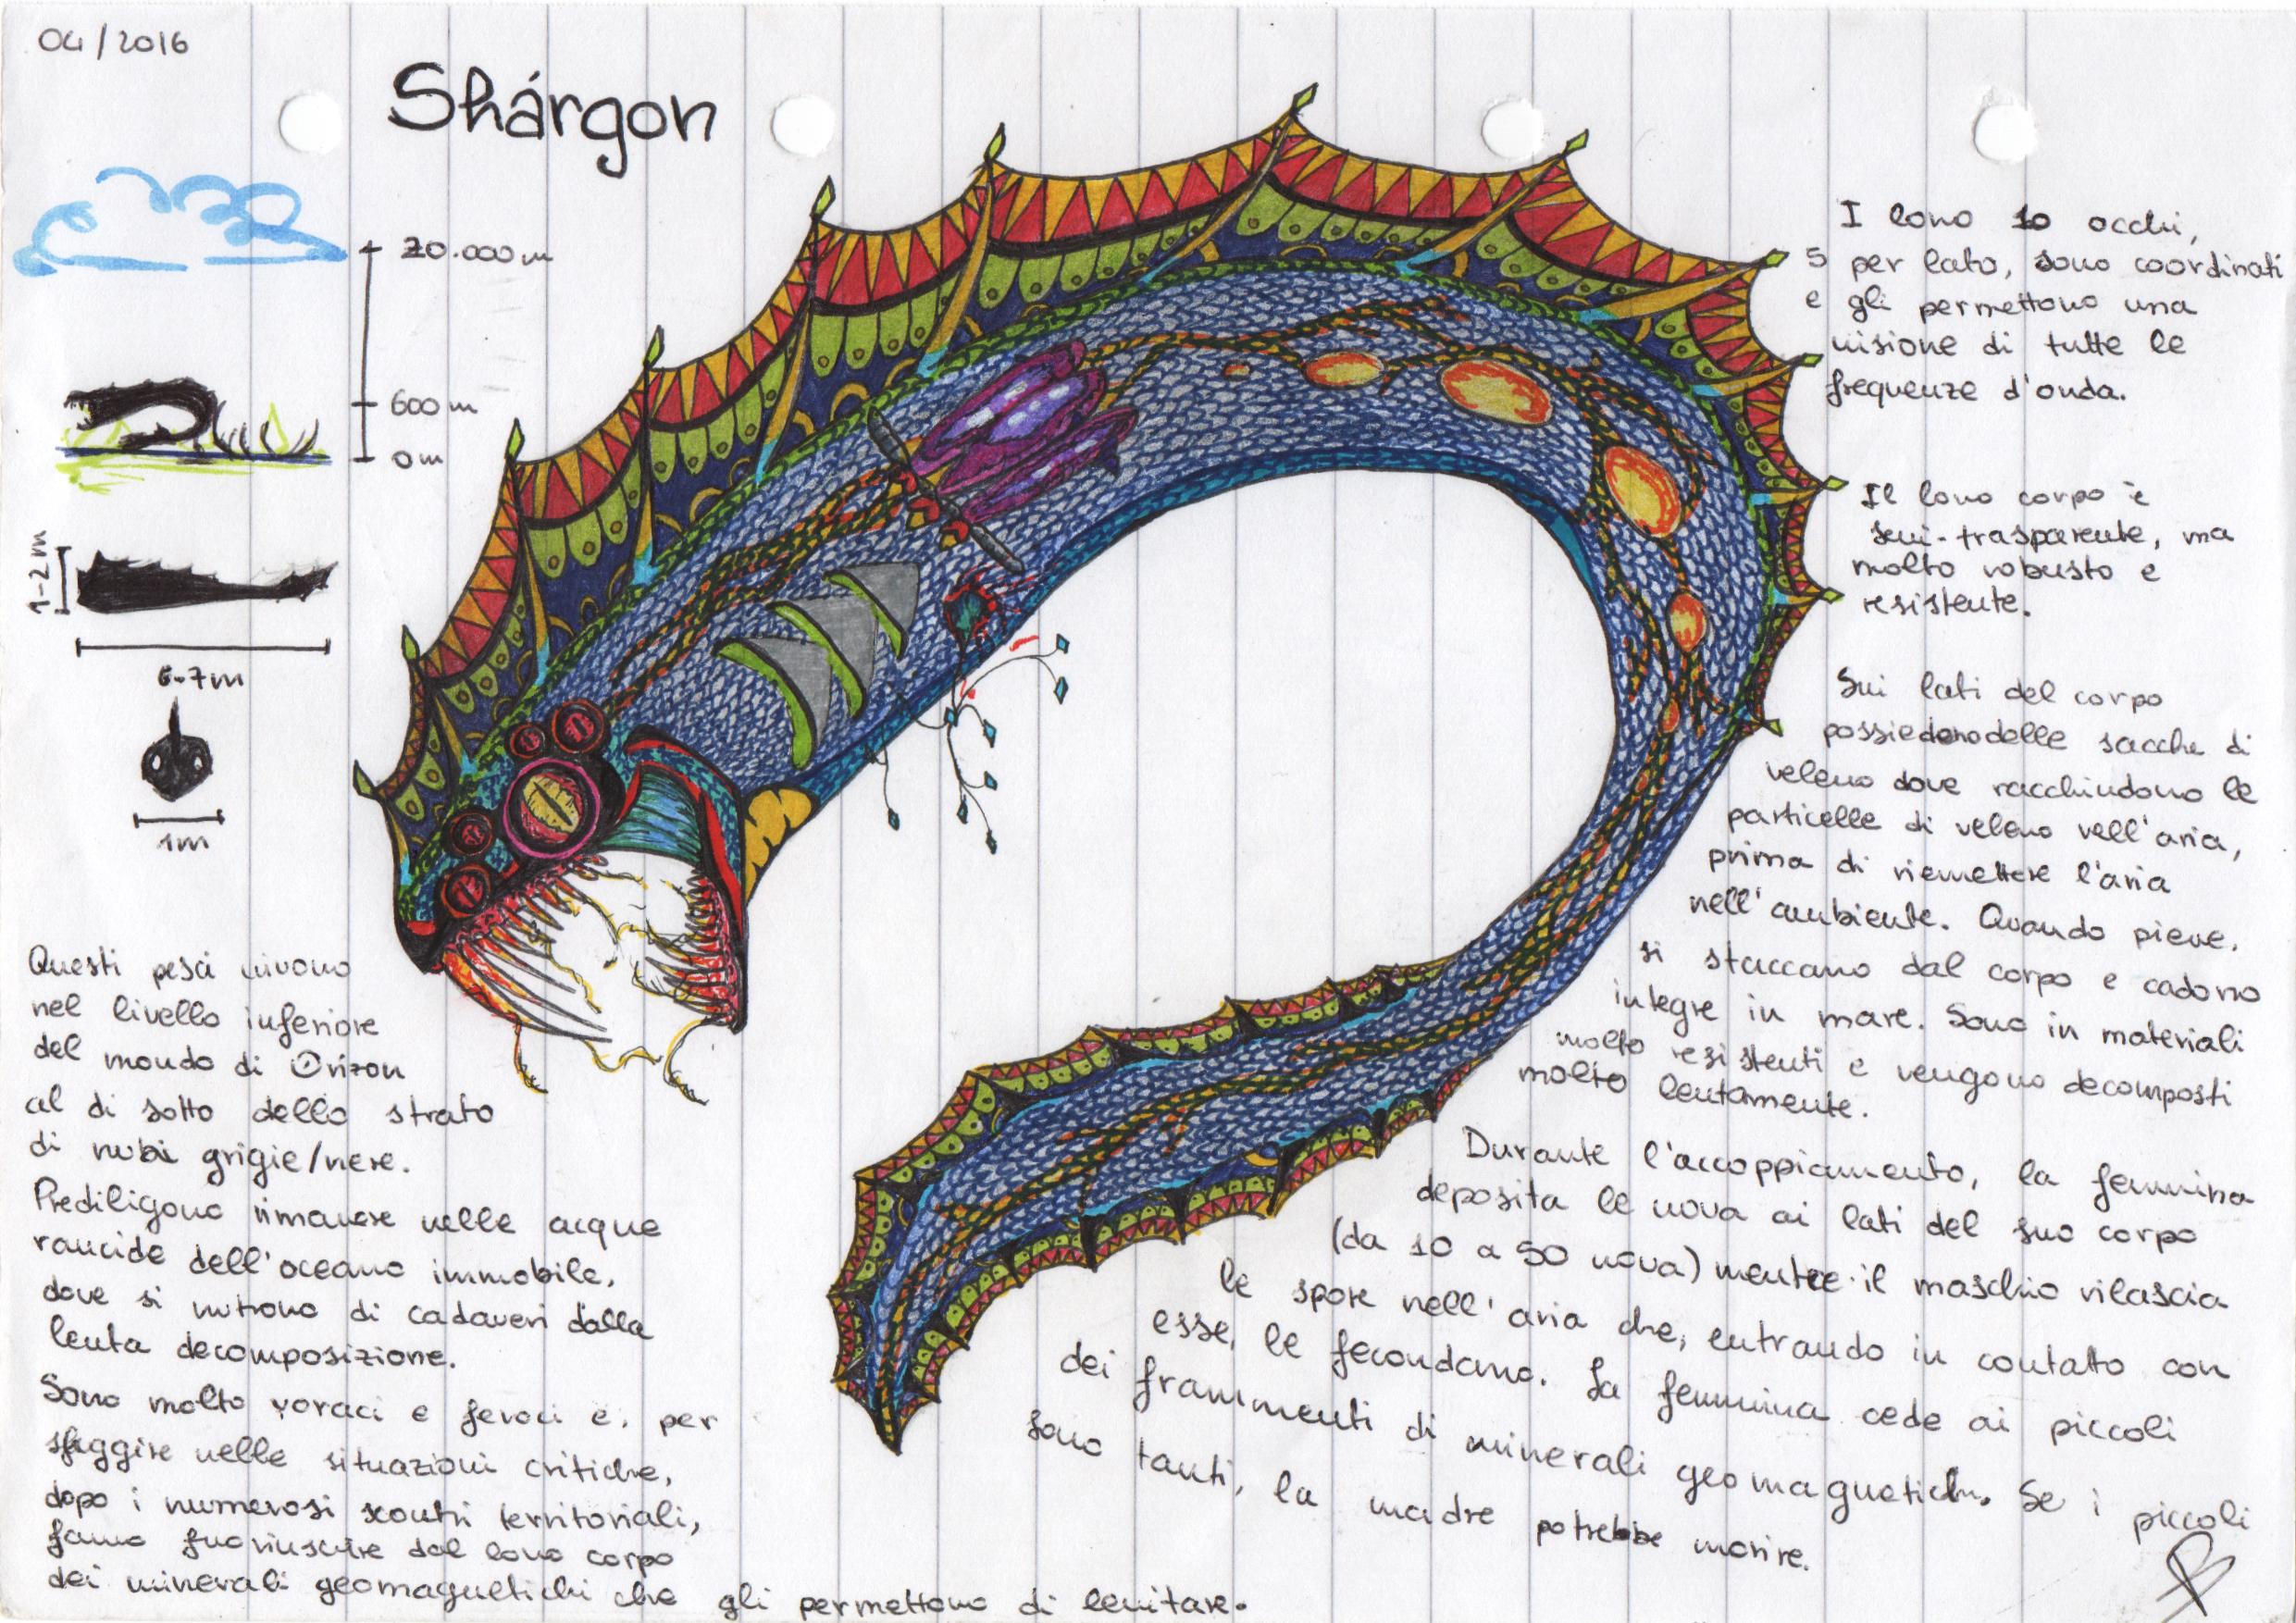 04/2016
Shárgon
20.000 m
600 m
0 m
1-2 m
6-7 m
1 m
I loro 10 occhi,
5 per lato, sono coordinati
e gli permettono una
visione di tutte le
frequenze d'onda.
Il loro corpo è
semi-trasparente, ma
molto robusto e
resistente.
Sui lati del corpo
possiedono delle sacche di
veleno dove racchiudono le
particelle di veleno nell'aria,
prima di riemettere l'aria
nell'ambiente. Quando piove,
si staccano dal corpo e cadono
integre in mare. Sono in materiali
molto resistenti e vengono decomposti
molto lentamente.
Durante l'accoppiamento, la femmina
deposita le uova ai lati del suo corpo
(da 10 a 50 uova) mentre il maschio rilascia
le spore nell'aria che, entrando in contatto con
esse, le fecondano. La femmina cede ai piccoli
dei frammenti di minerali geomagnetichi. Se i piccoli
sono tanti, la madre potrebbe morire.
Questi pesci vivono
nel livello inferiore
del mondo di Orizon
al di sotto dello strato
di nubi grigie/nere.
Prediligono rimanere nelle acque
rancide dell'oceano immobile,
dove si nutrono di cadaveri dalla
lenta decomposizione.
Sono molto voraci e feroci e, per
sfuggire nelle situazioni critiche,
dopo i numerosi scontri territoriali,
fanno fuoriuscire dal loro corpo
dei minerali geomagnetichi che gli permettono di levitare.